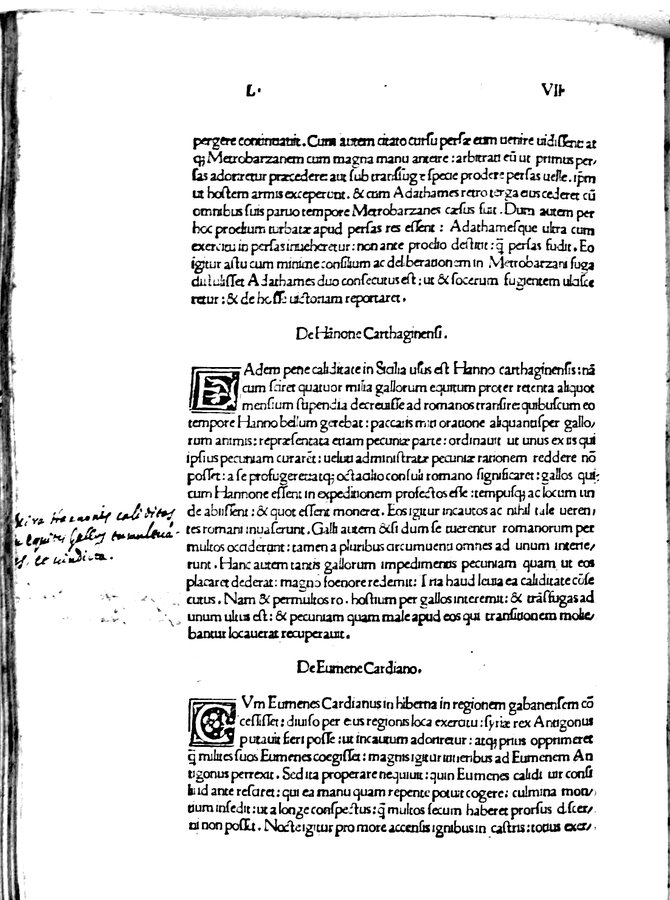 L. VII
pergere continuauit. Cum autem citato cursu persæ eum uenire uidissent: at
q; Metrobarzanem cum magna manu anteire: arbitrati eū ut primus per/
sas adoriretur præcedere aut sub transfugæ specie prodere persas uelle. ipm̄
ut hostem armis exceperunt. & cum Adathames retro terga eius cederet cū
omnibus suis paruo tempore Metrobarzanes cæsus fuit. Dum autem per
hoc prœlium turbatæ apud persas res essent: Adathamesque ultra cum
exercitu in persas inueheretur: non ante prœlio destitit: q̄ persas fudit. Eo
igitur astu cum minime consilium ac deliberationem in Metrobarzani fuga
Adathames duo consecutus est: ut & socerum fugientem ulcisce
retur: & de hoste uictoriam reportaret.
De Hānone Carthaginensi.
EAdem pene caliditate in Sicilia usus est Hanno carthaginensis: nā
cum sciret quatuor milia gallorum equitum propter retenta aliquot
mensium stipendia decreuisse ad romanos transire: quibuscum eo
tempore Hanno bellum gerebat: paccatis miti oratione aliquantisper gallo/
rum animis: repræsentata etiam pecuniæ parte: ordinauit ut unus ex iis qui
ipsius pecuniam curaret: ueluti administratæ pecuniæ rationem reddere nō
posset: a se profugeret atq; octacilio consuli romano significaret: gallos qui/
cum Hannone essent in expeditionem profectos esse: tempusq; ac locum un
de abissent: & quot essent moneret. Eos igitur incautos ac nihil tale ueren/
tes romani inuaserunt. Galli autem &si dum se tuerentur romanorum per
multos occiderunt: tamen a pluribus circumuenti omnes ad unum interie/
runt. Hanc autem tantis gallorum impedimentis pecuniam quam ut eos
placaret dederat: magno foenore redemit: Ita haud leuia ea caliditate cōse
cutus. Nam & permultos ro. hostium per gallos interemit: & trāsfugas ad
unum ultus est: & pecuniam quam male apud eos qui transitionem molie/
bantur locauerat recuperauit.
Hannonis caliditas
equites Gallos
et uindicta.
De Eumene Cardiano.
CVm Eumenes Cardianus in hiberna in regionem gabanensem cō
cessisset: diuiso per eius regionis loca exercitu: syriæ rex Antigonus
putauit fieri posse: ut incautum adoriretur: atq; prius opprimeret
q̄ milites suos Eumenes coegisset: magnis igitur itineribus ad Eumenem An
tigonus perrexit. Sed ita properare nequiuit: quin Eumenes calidi uir consi
lii id ante resciret: qui ea manu quam repente potuit cogere: culmina mon/
tium insedit: ut a longe conspectus: q̄ multos secum haberet prorsus discer/
ni non posset. Nocte igitur pro more accensis ignibus in castris: totius exer/